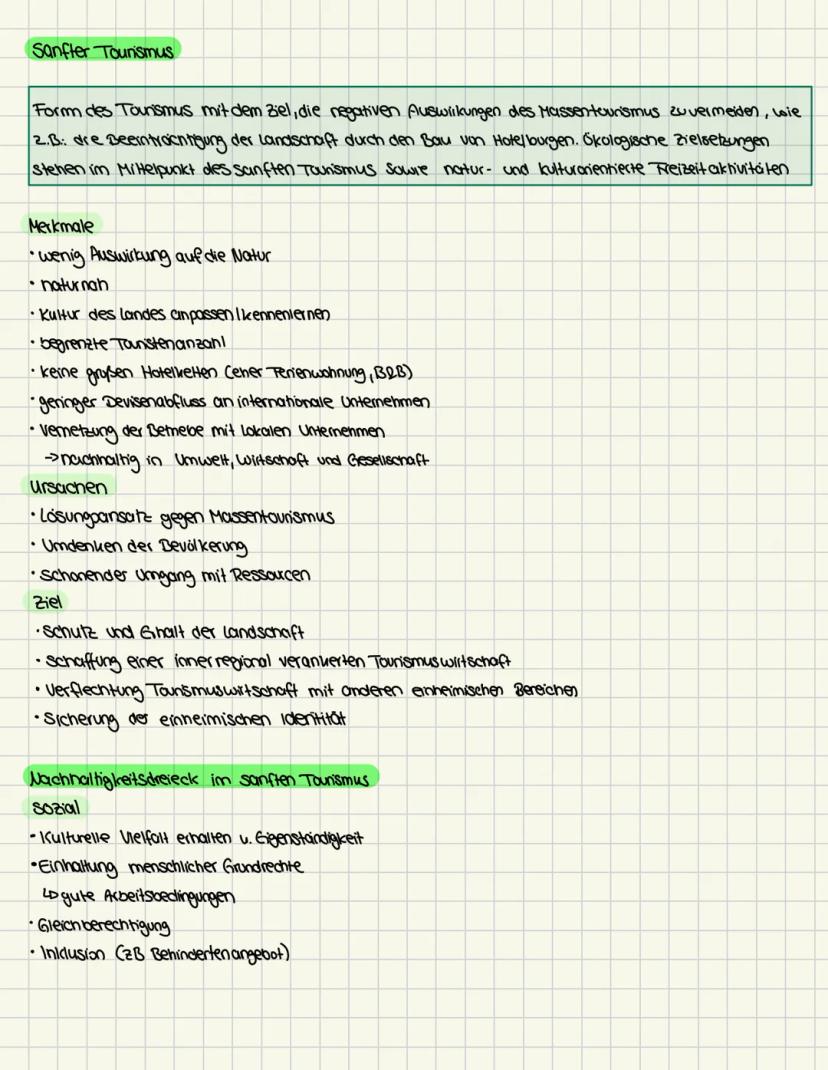 Sanfter Tourismus
Form des Tourismus mit dem Ziel, die negativen Auswirkungen des Massentourismus zu vermeiden, wie
z.B.: die Beeinträchtigung der Landschaft durch den Bau von Hotelburgen. Ökologische Zielsetzungen
stehen im Mittelpunkt des sanften Tourismus sowie natur- und kulturorientierte Freizeitaktivitäten
Merkmale
· wenig Auswirkung auf die Natur
· naturnah
· Kultur des Landes anpassen/kennenlernen
· begrenzte Touristenanzahl
· keine großen Hotelketten (eher Ferienwohnung, B&B)
· geringer Devisenabfluss an internationale Unternehmen
· Vernetzung der Betriebe mit lokalen Unternehmen
→ nachhaltig in Umwelt, Wirtschaft und Gesellschaft
Ursachen
· Lösungsansatz gegen Massentourismus
· Umdenken der Bevölkerung
· schonender Umgang mit Ressourcen
Ziel
· Schutz und Erhalt der Landschaft
· Schaffung einer innerregional verankerten Tourismuswirtschaft
· Verflechtung Tourismuswirtschaft mit anderen einheimischen Bereichen
· Sicherung der einheimischen Identität
Nachhaltigkeitsdreieck im sanften Tourismus
Sozial
· Kulturelle Vielfalt erhalten u. Eigenständigkeit
· Einhaltung menschlicher Grundrechte
↳ gute Arbeitsbedingungen
· Gleichberechtigung
· Inklusion (zB Behindertenangebot)